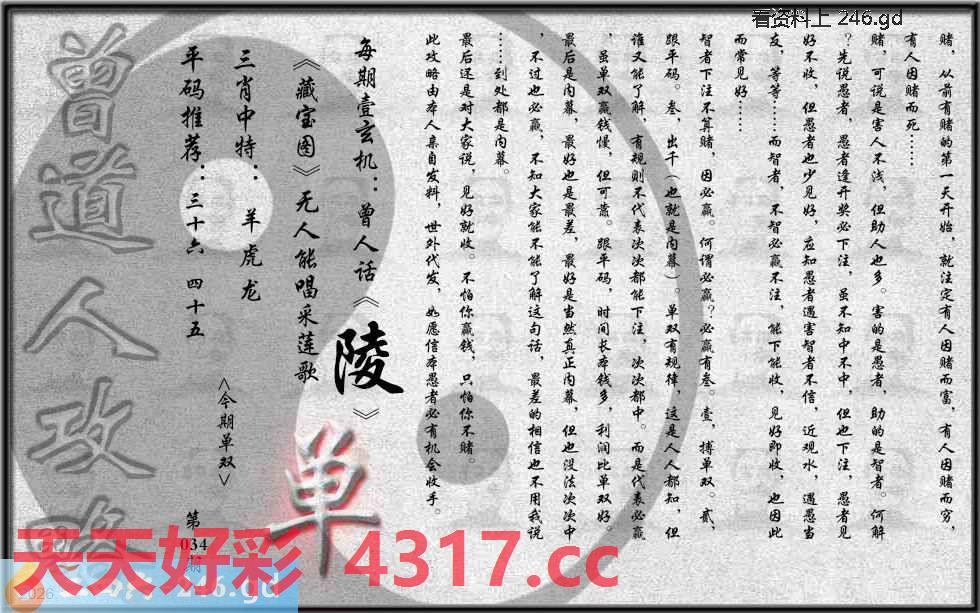 看资料上 246.gd
赌，从前有赌的第一天开始，就注定有人因赌而富，有人因赌而穷，
有人因赌而死……
赌，可说是害人不浅，但助人也多。害的是愚者，助的是智者。何解
？先说愚者，愚者逢开奖必下注，虽不知中不中，但也下注，愚者见
好不收，但愚者也少见好，应知愚者遇害智者不信，近观水，遇愚当
友，等等……而智者，不智必赢不注，能下能收，见好即收，也因此
而常见好……
智者下注不算赌，因必赢。何谓必赢？必赢有叁。壹，搏单双。贰，
跟平码。叁，出千（也就是内幕）。单双有规律，这是人人都知，但
谁又能了解，有规则不代表次次都能下注，次次都中。而是代表必赢
，虽单双赢钱慢，但可靠。跟平码，时间长本钱多，利润比单双好。
最后是内幕，最好也是最差，最好是当然真正内幕，但也没法次次中
，不过也必赢，不知大家能不能了解这句话，最差的相信也不用我说
……到处都是内幕。
最后还是对大家说，见好就收。不怕你赢钱，只怕你不赌。
此攻略由本人亲自发料，世外代发，如愿信本愚者必有机会收手。
每期壹玄机：曾人话《陵》
《藏宝图》无人能唱采莲歌
三肖中特：羊虎龙
平码推荐：三十六 四十五
<今期单双>
单
第
034
期
曾道人攻略
天天好彩 4317.cc
246.gd